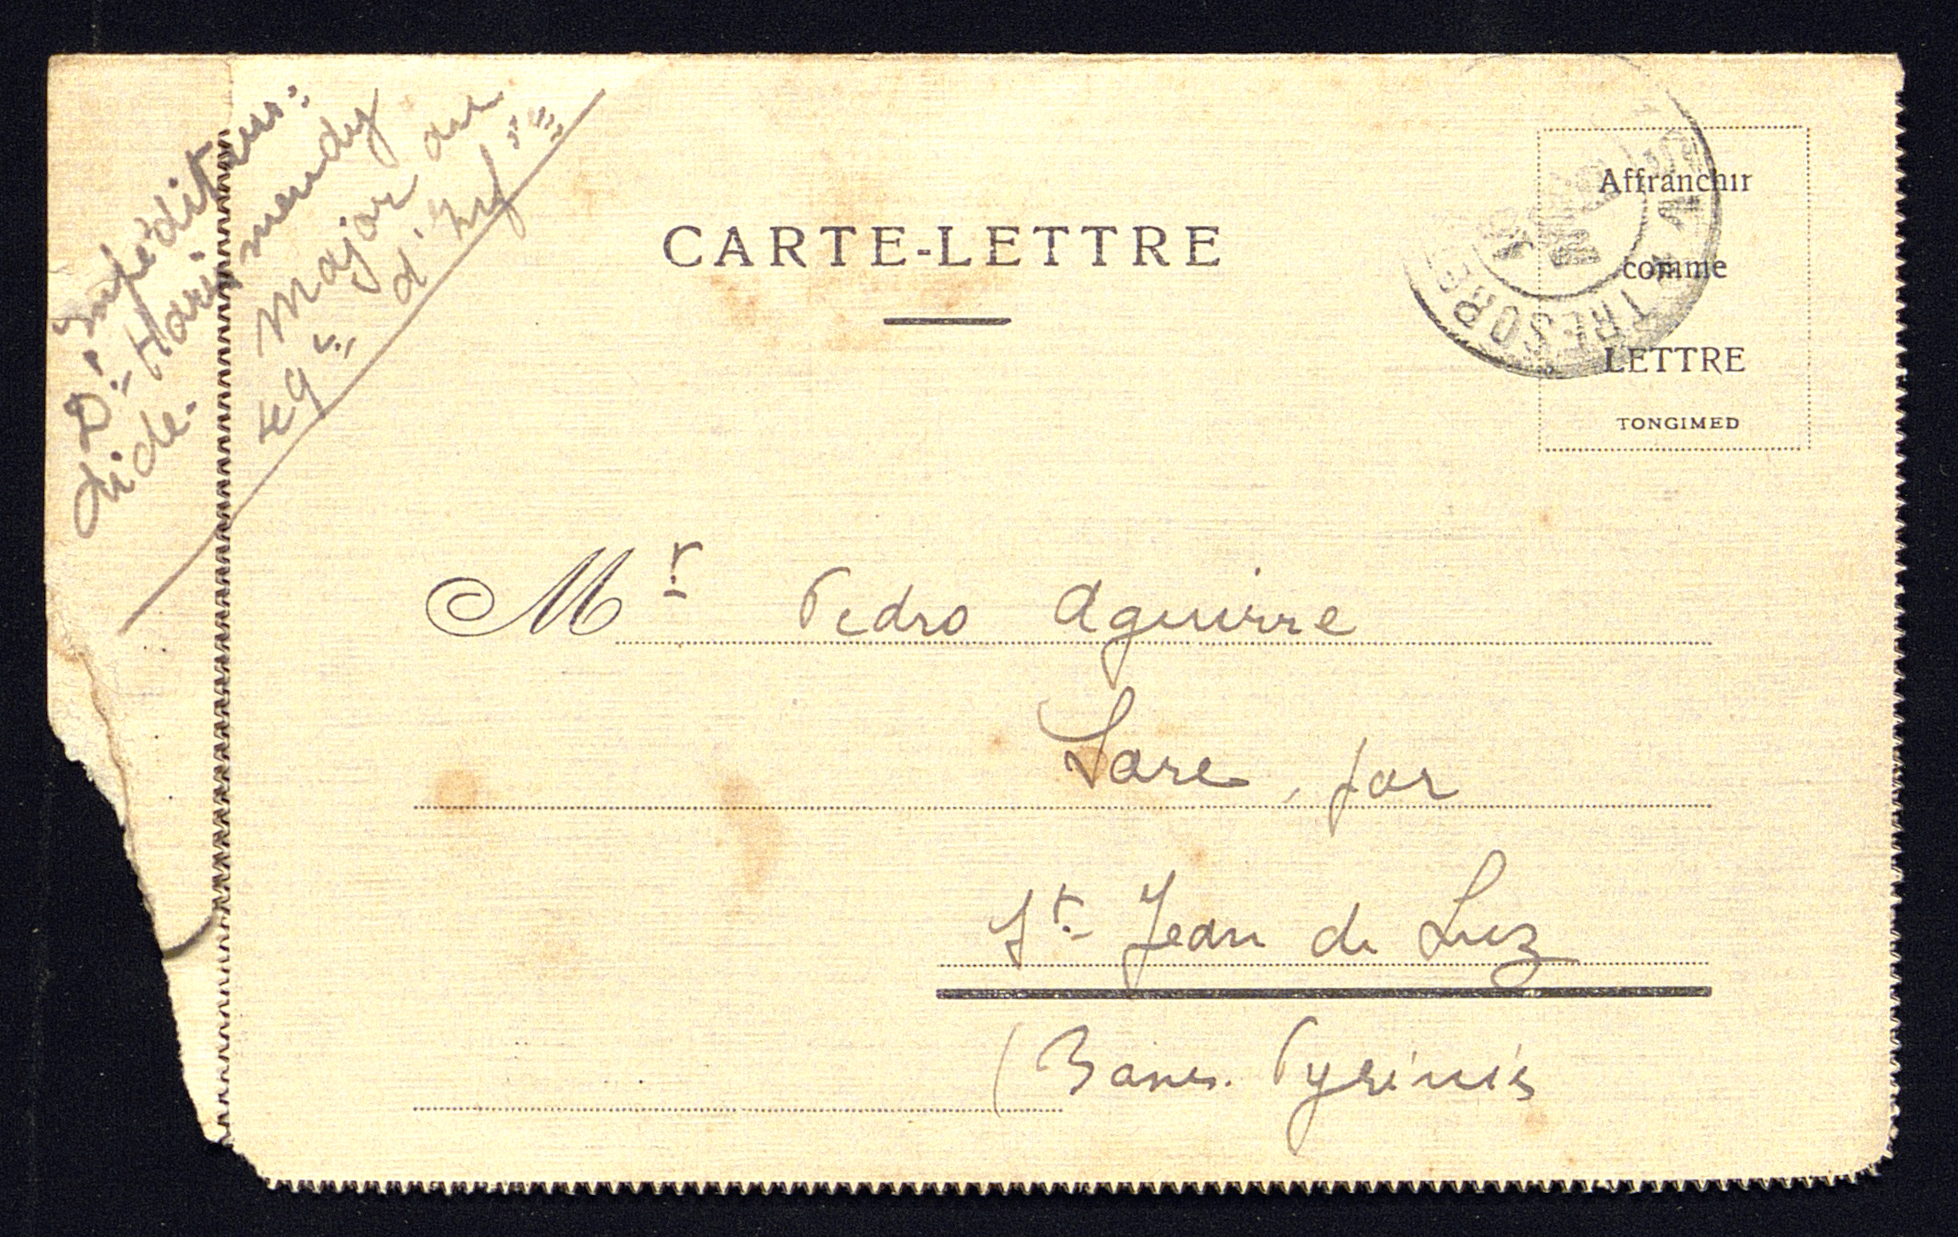 Expéditeur:
Dr. Harismendy
Aide-Major au
49e d'Inf.ie
CARTE-LETTRE
TRESOR
Affranchir
comme
LETTRE
TONGIMED
Mr Pedro Aguirre
Sare, par
St Jean de Luz
(Bases. Pyrénées